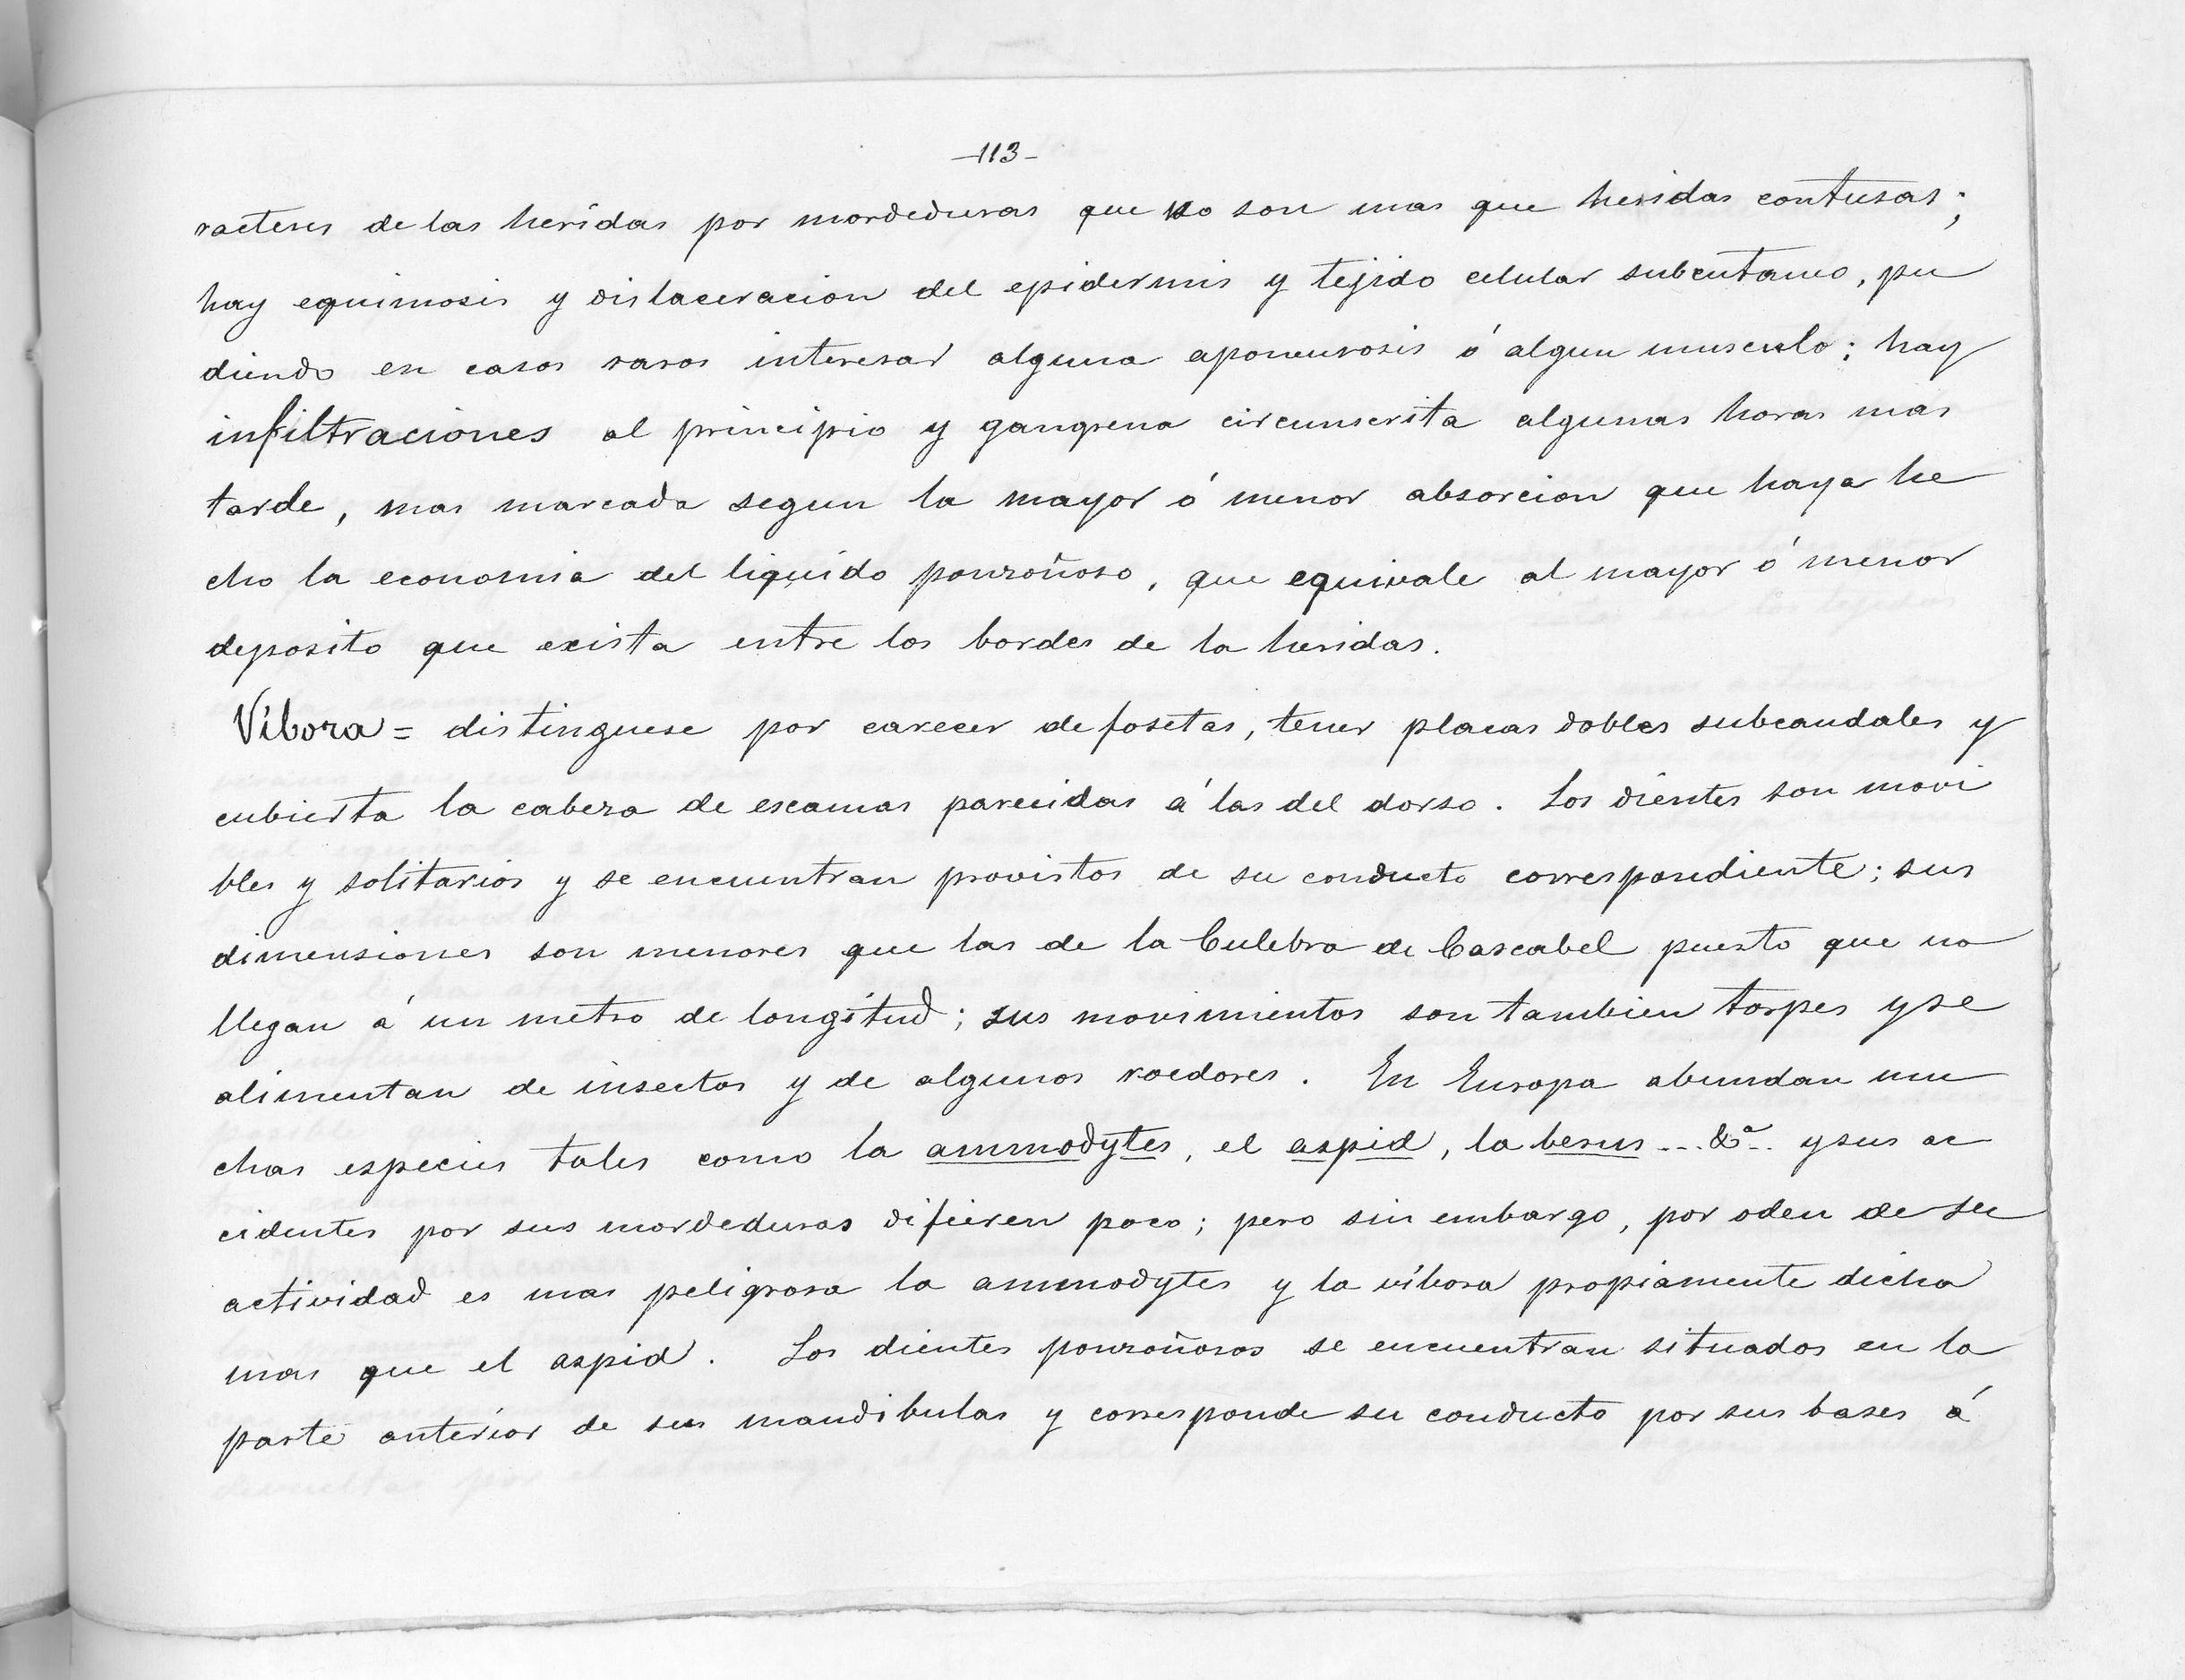 -113-
racteres de las heridas por mordeduras que no son mas que heridas contusas;
hay equimosis y dislaceracion del epidermis y tejido celular subcutaneo, pu
diendo en casos raros interesar alguna aponeurosis ó algun musculo; hay
infiltraciones al principio y gangrena circunscrita algunas horas mas
tarde, mas marcada segun la mayor ó menor absorcion que haya he
cho la economia del liquido ponzoñoso, que equivale al mayor ó menor
deposito que exista entre los bordes de la heridas.
Víbora = distinguese por carecer de fosetas, tener placas dobles subcaudales y
cubierta la cabeza de escamas parecidas á las del dorso. Los dientes son movi
bles y solitarios y se encuentran provistos de su conducto correspondiente; sus
dimensiones son menores que las de la Culebra de Cascabel puesto que no
llegan á un metro de longitud; sus movimientos son tambien torpes y se
alimentan de insectos y de algunos roedores. En Europa abundan mu
chas especies tales como la ammodytes, el aspid, la berus ... &ª .. y sus ac
cidentes por sus mordeduras difieren poco; pero sin embargo, por oden de su
actividad es mas peligrosa la ammodytes y la víbora propiamente dicha
mas que el aspid. Los dientes ponzoñosos se encuentran situados en la
parte anterior de sus mandibulas y corresponde su conducto por sus bases á